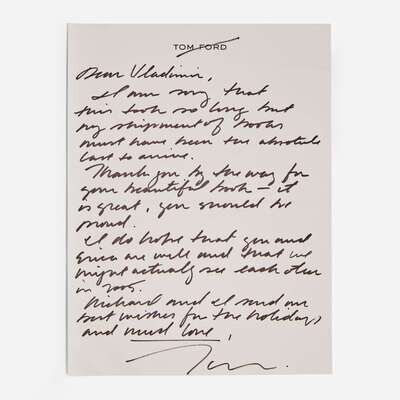 TOM FORD
Dear Vladimir,
I am sorry that
this took so long but
my shipment of books
must have been the absolute
last to arrive.
Thank you by the way for
your beautiful book – it
is great, you should be
proud.
I do hope that you and
Erica are well and that we
might actually see each other
in 2005.
Richard and I send our
best wishes for the holidays
and much love,
Tom.